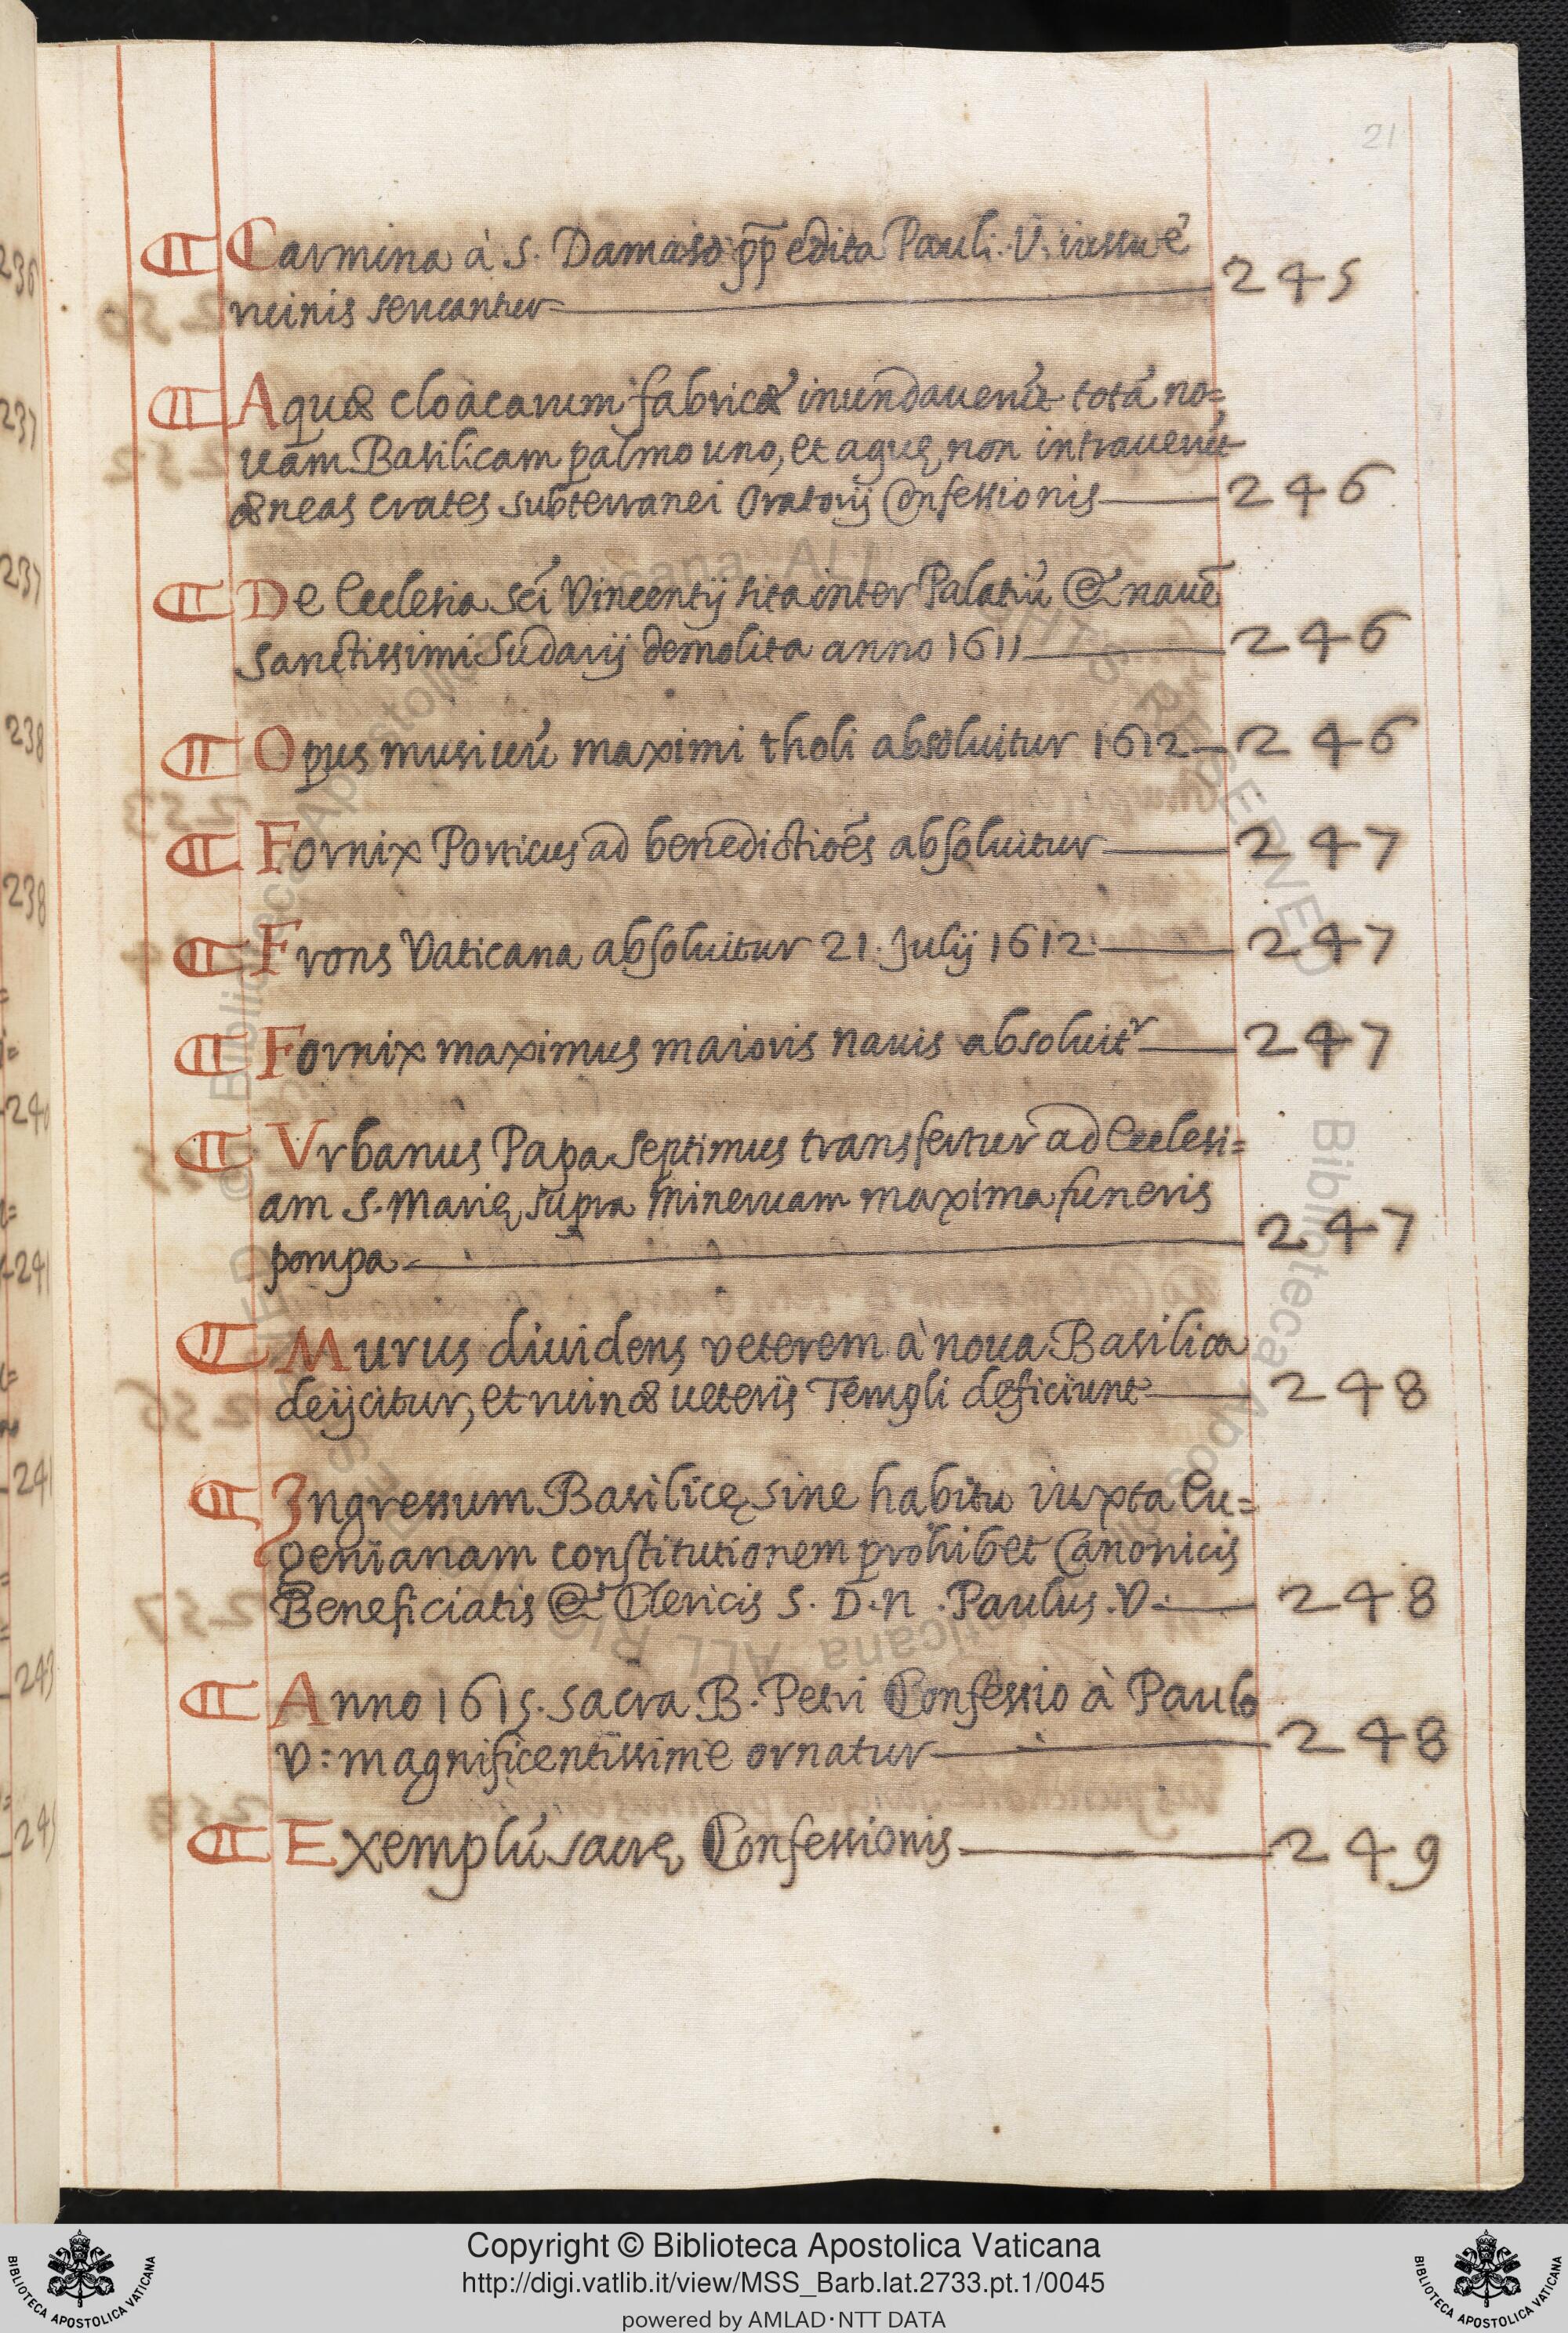 21
¶ Carmina à S. Damaso pp̄ edita Pauli. V. iussu é
ruinis seruantur 245
¶ Aquæ cloacarum fabricæ inundauerūt totá no=
uam Basilicam palmo uno, et aquę non intrauerūt
æneas crates subterranei Oratorij Confessionis 246
¶ De Ecclesia Sći Vincentij sita inter Palatiú & nauē
Sanctissimi Sudarij demolita anno 1611 246
¶ Opus musiuú maximi tholi absoluitur 1612 246
¶ Fornix Porticus ad benedictioēs absoluitur 247
¶ Frons Vaticana absoluitur 21. Julij 1612 247
¶ Fornix maximus maioris nauis absoluitʳ 247
¶ Vrbanus Papa Septimus transfertur ad Ecclesi=
am S. Marię supra Mineruam maxima funeris
pompa 247
¶ Murus diuidens veterem à noua Basilica
deijcitur, et ruinæ ueteris Templi deficiunt 248
¶ Ingressum Basilicę sine habitu iuxta Eu=
genianam constitutionem prohibet Canonicis
Beneficiatis & Clericis S. D. N. Paulus. V. 248
¶ Anno 1615. sacra B. Petri Confessio à Paulo
V: magnificentissime ornatur 248
¶ Exemplú sacrę Confessionis 249
Copyright © Biblioteca Apostolica Vaticana
http://digi.vatlib.it/view/MSS_Barb.lat.2733.pt.1/0045
powered by AMLAD·NTT DATA
BIBLIOTECA APOSTOLICA VATICANA
BIBLIOTECA APOSTOLICA VATICANA